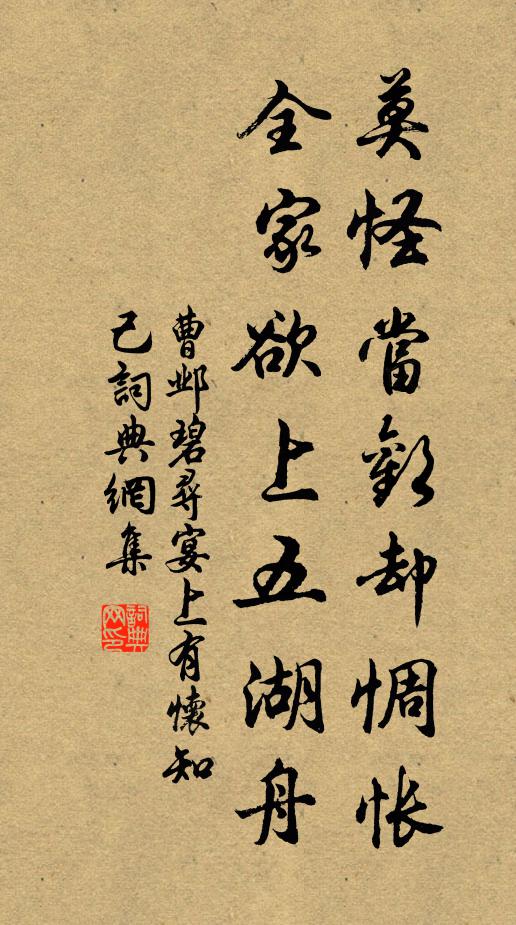 莫怪當歡却惆悵
全家欲上五湖舟
曹邺碧尋宴上有懷知
己詞典網集
詞典
网印